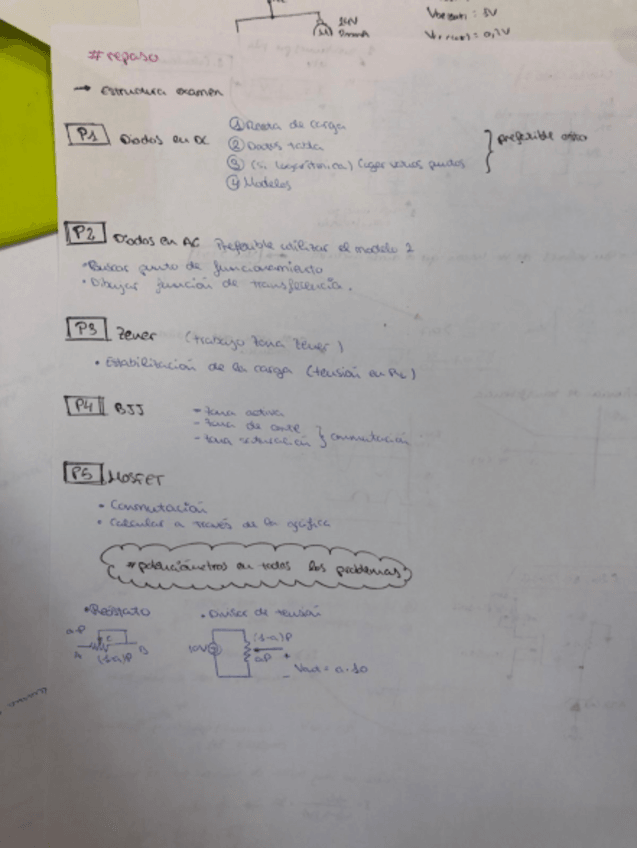 14V
2mmA
VBE(sat) : 1V
VCE(sat) = 0,2V
#repaso
→ estructura examen
P1 Diodos en DC
① Recta de carga
② Datos tabla
③ (si logarítmica) Coger varios puntos
④ Modelos
preferible esto
P2 Diodos en AC Preferible utilizar el modelo 2
• Buscar punto de funcionamiento
• Dibujar función de transferencia.
P3 Zener (trabajo zona zener)
• Estabilización de la carga (tensión en RL)
P4 BJJ
- Zona activa
- Zona de corte
- Zona saturación } conmutación
P5 MOSFET
• Conmutación
• Calcular a través de la gráfica
#potenciómetros en todos los problemas
• Reóstato
• Divisor de tensión
a·P
A
(1-a)P
B
10V
(1-a)P
aP
+
-
Vout = a·10